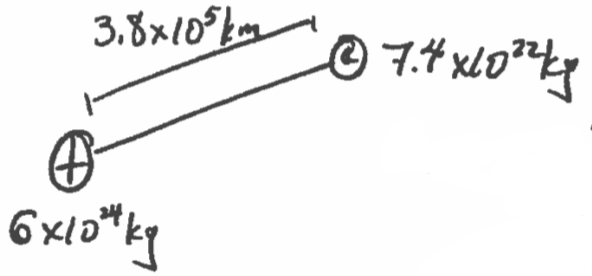 3.8x10⁵km
7.4x10²²kg
6x10²⁴kg